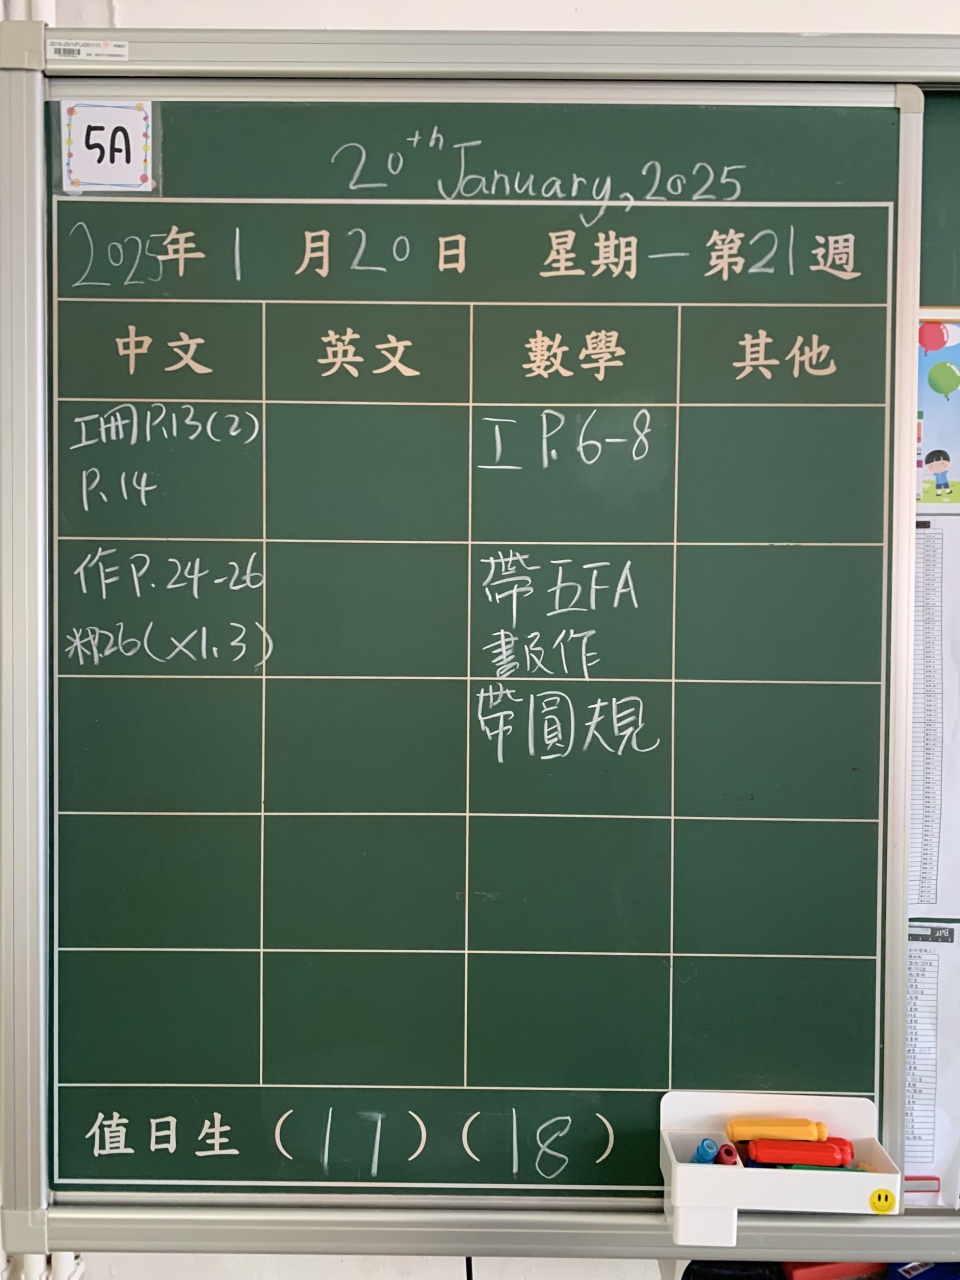 5A
20th January, 2025
2025年1月20日 星期一 第21週
中文 英文 數學 其他
工冊P.13(2)
P.14
工 P.6-8
作P.24-26
P.26(×1.3)
帶五FA
書及作
帶圓規
值日生(17)(18)